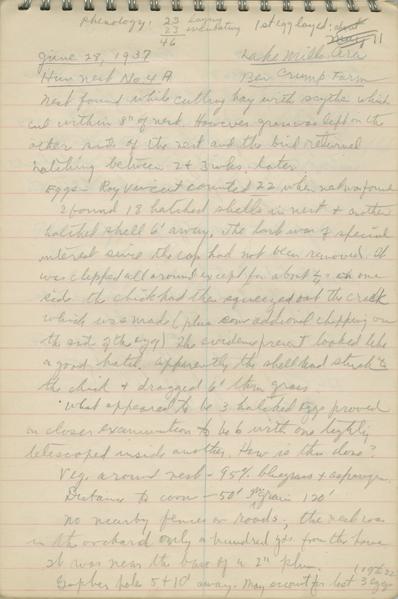 Phenology: 23 laying 1st egg layed:
23 incubating 11
46
June 28, 1937 Lake Mills Area
Hun nest No. 4 A Ben Crump Farm
Nest found while cutting hay with scythe which
cut within 8" of nest. However grass was left on the
other side of the nest and the bird returned
hatching between 2 & 3 wks. later
Eggs - Roy counted 22 when nest was found
I found 18 hatched shells in nest & another
hatched shell 6' away. The last was of special
interest since the cap had not been removed. It
was chipped all around except for about on one
side the chick had then squeezed out the crack
which was made (plus some additional chipping on
the side of the egg) The evidence present looked like
a good hatch, apparently the shell had stuck to
the chick & dragged 6' thru grass.
What appeared to be 3 hatched eggs proved
on closer examination to be 6 with one tightly
telescoped inside another. How is this done?
Veg. around nest - 95% bluegrass & asparagus
Distance to cover - 50' grain 120'
No nearby fences or roads, the nest was
in the orchard only a hundred yds. from the house
It was near the base of a 2" plum.
Gopher hole 5 & 10' away. May account for lost 3 eggs